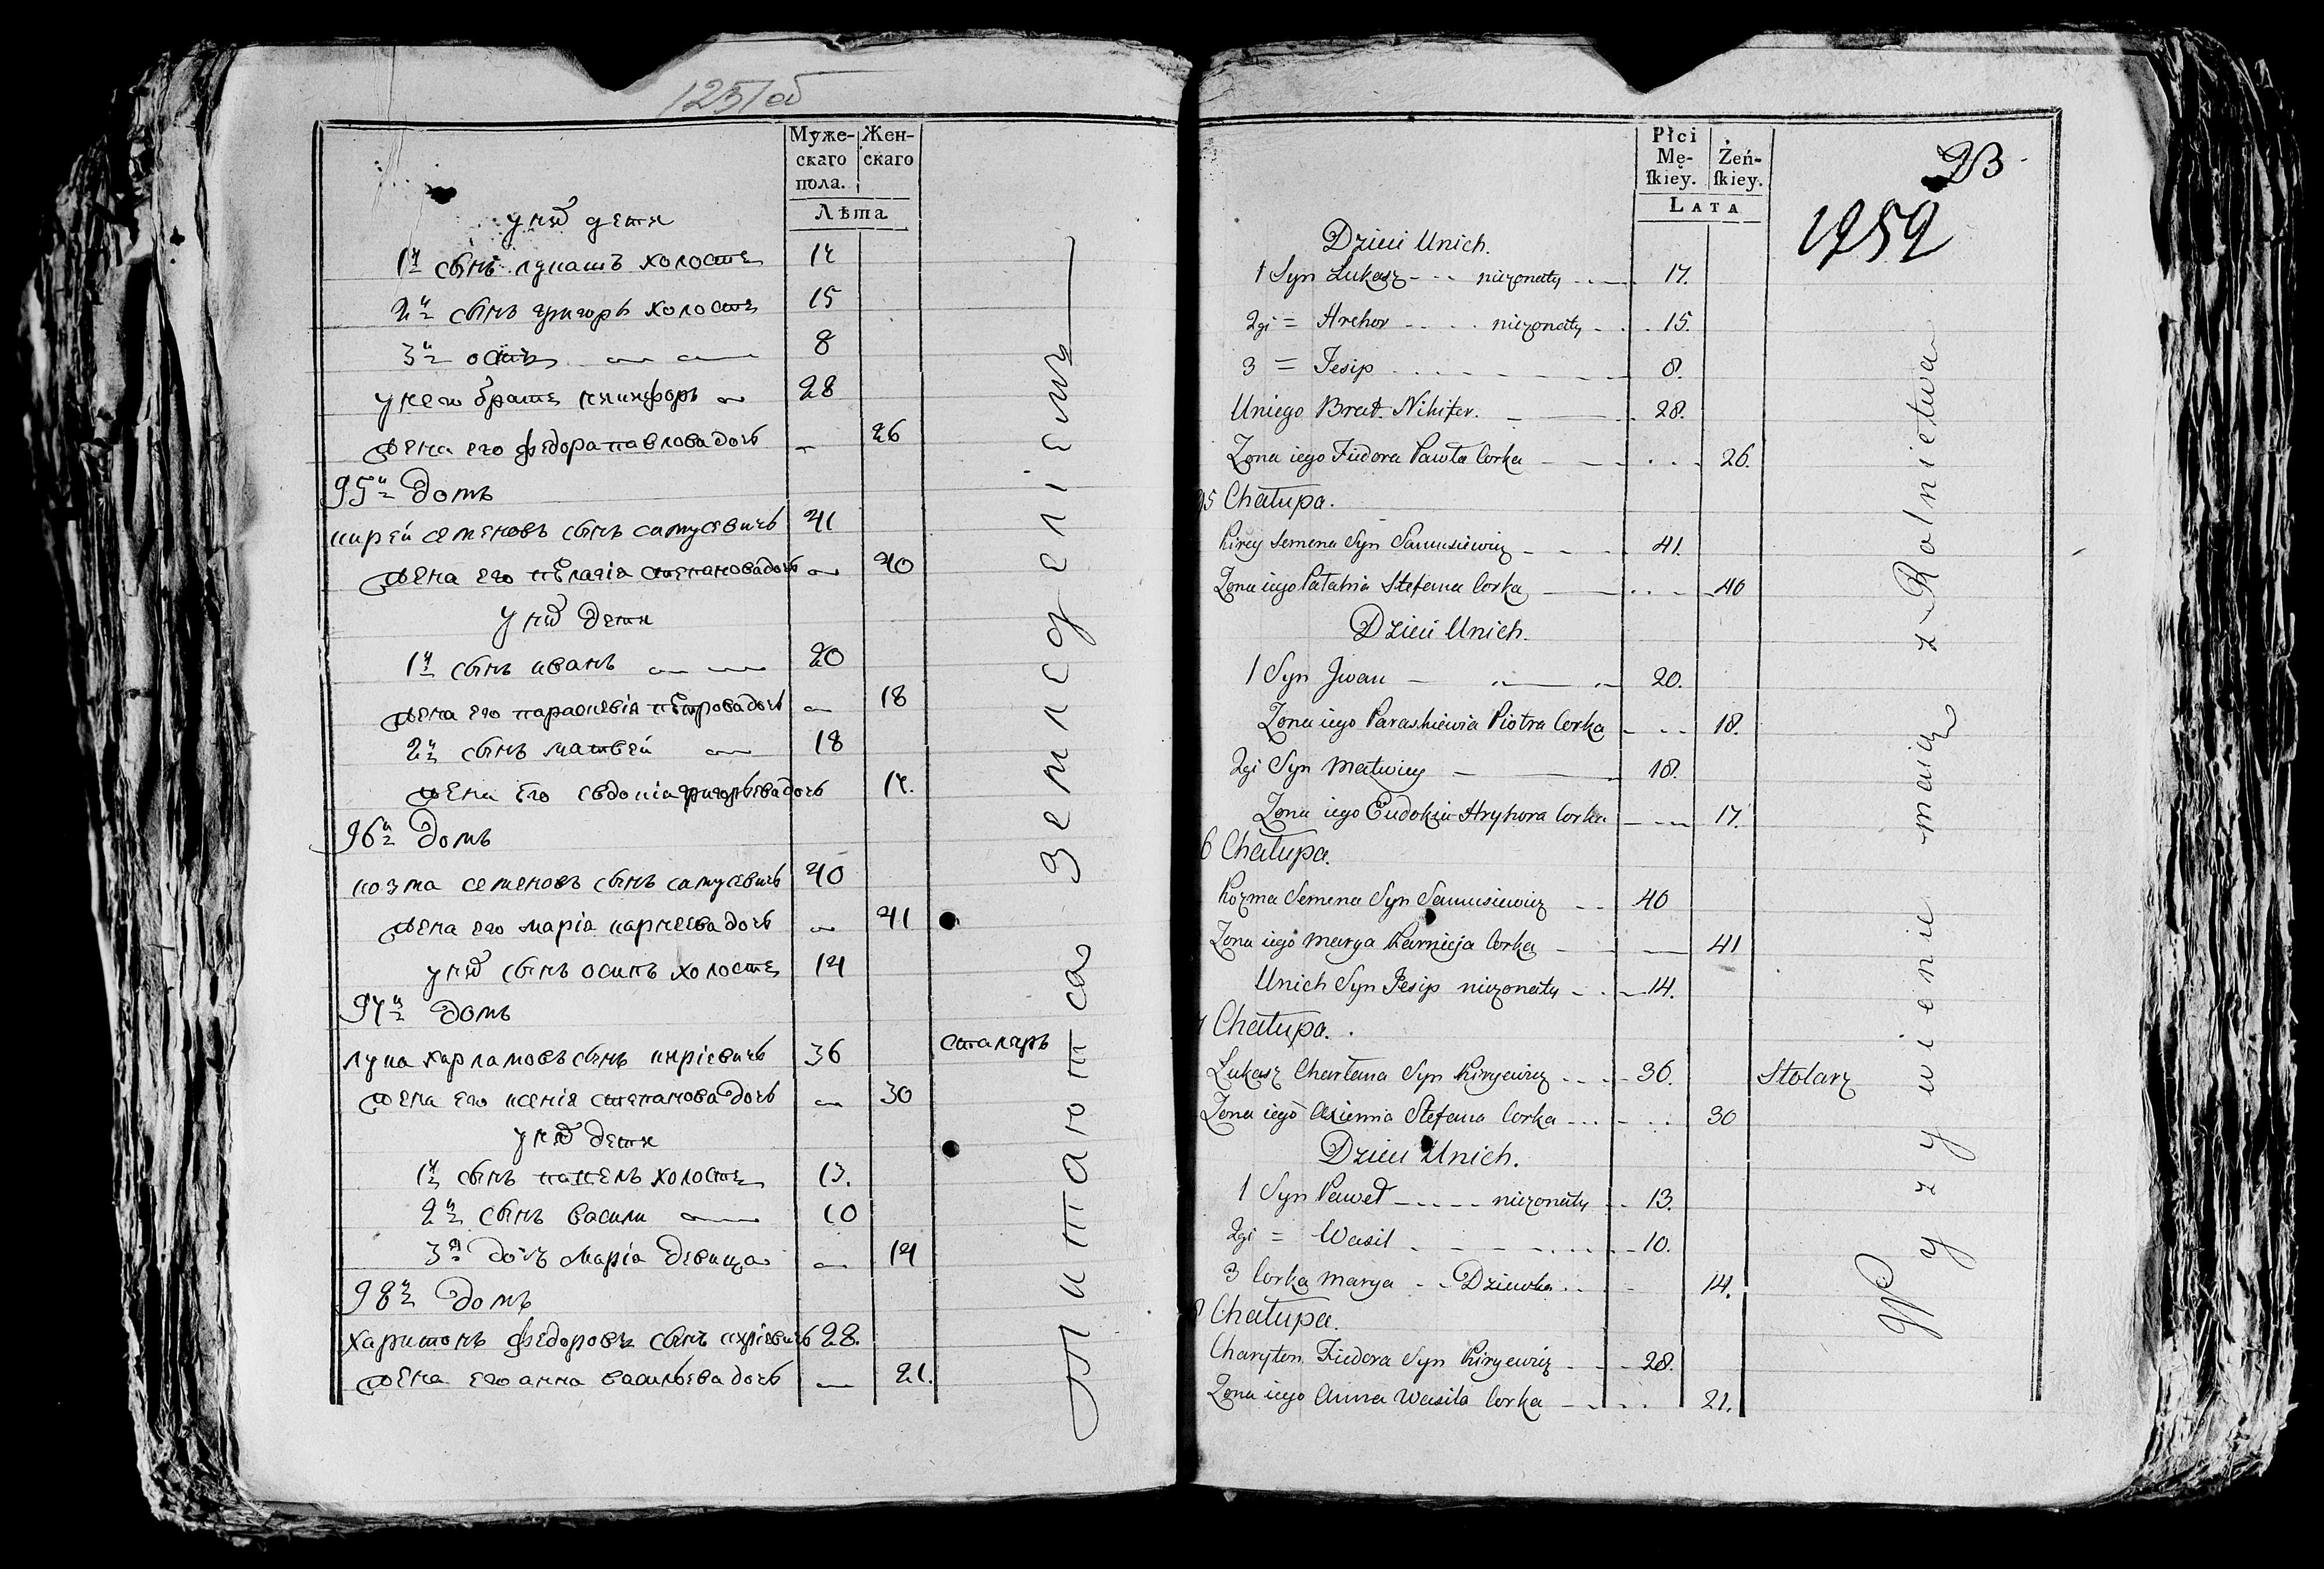 1251об
Муже-
скаго
пола.
Жен-
скаго
Лѣта
у них дети
1й сынъ лукашъ холостъ 17
2й сынъ григоръ холостъ 15
3й осипъ 8
у него братъ никифоръ 28
жена его федора павлова дочь 26
95й домъ
кирей семеновъ сынъ самусевичь 41
жена его пелагія степанова дочь 40
у них дети
1й сынъ иванъ 20
жена его параскевія петрова дочь 18
2й сынъ матвей 18
жена его евдокіа григорьева дочь 17.
96й домъ
козма семеновъ сынъ самусевичь 40
жена его маріа карнеева дочь 41
у них сынъ осипъ холостъ 14
97й домъ
лука харламовъ сынъ киріевичь 36 сталяръ
жена его ксеніа степанова дочь 30
у них дети
1й сынъ павелъ холостъ 13.
2й сынъ васили 10
3я дочь маріа девица 14
98й домъ
харитонъ федоровъ сынъ киріевичь 28.
жена его анна васильева дочь 21.
питаютса земледеліемъ
Płci
Mę-
ſkiey.
Żeń-
ſkiey.
Lata
23
1252
Dzieci Unich.
1 Syn Łukasz - - - niezonaty - - - 17.
2gi = Hrehor - - - - niezonaty - - - 15.
3 = Jesip - - - - - 8.
Uniego Brat Nikifer. — 28.
Zona iego Fiedora Pawła Corka — 26.
95 Chałupa.
Kirey Semena Syn Samusiewicz - - - 41.
Zona iego Pałahia Stefana Corka — 40
Dzieci Unich.
1 Syn Jwan — 20.
Zona iego Paraskiewia Piotra Corka - - - 18.
2gi Syn Matwiey — 18.
Zona iego Eudokia Hryhora Corka — 17.
6 Chałupa.
Kozma Semena Syn Samusiewicz - - 40
Zona iego Marya Karnieja Corka — 41
Unich Syn Jesip niezonaty - - 14.
7 Chałupa.
Łukasz Charłama Syn Kiryewicz - - - 36. Stolarz
Zona iego Axienia Stefana Corka - - - 30
Dzieci Unich.
1 Syn Paweł - - - - niezonaty - - 13.
2gi = Wasil - - - - 10.
3 Corka Marya - - Dziewka - - 14.
8 Chałupa.
Charyton Fiedora Syn Kiryewicz - - - 28.
Zona iego Anna Wasila Corka - - - 21.
Wyzywienie maią z Rolnictwa